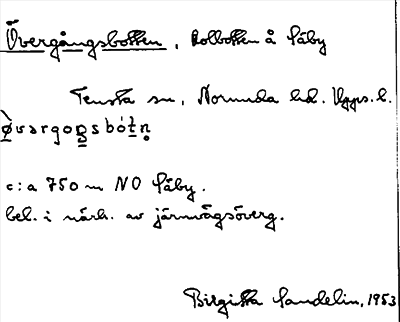 Övergångsbotten, Kolbotten å Säby
Tensta sn, Norunda hd. Upps. l.
ø̀vərgoŋsbót̠ņ
c:a 750 m NO Säby.
bel. i närh. av järnvägsöverg.
Birgitta Sandelin, 1953